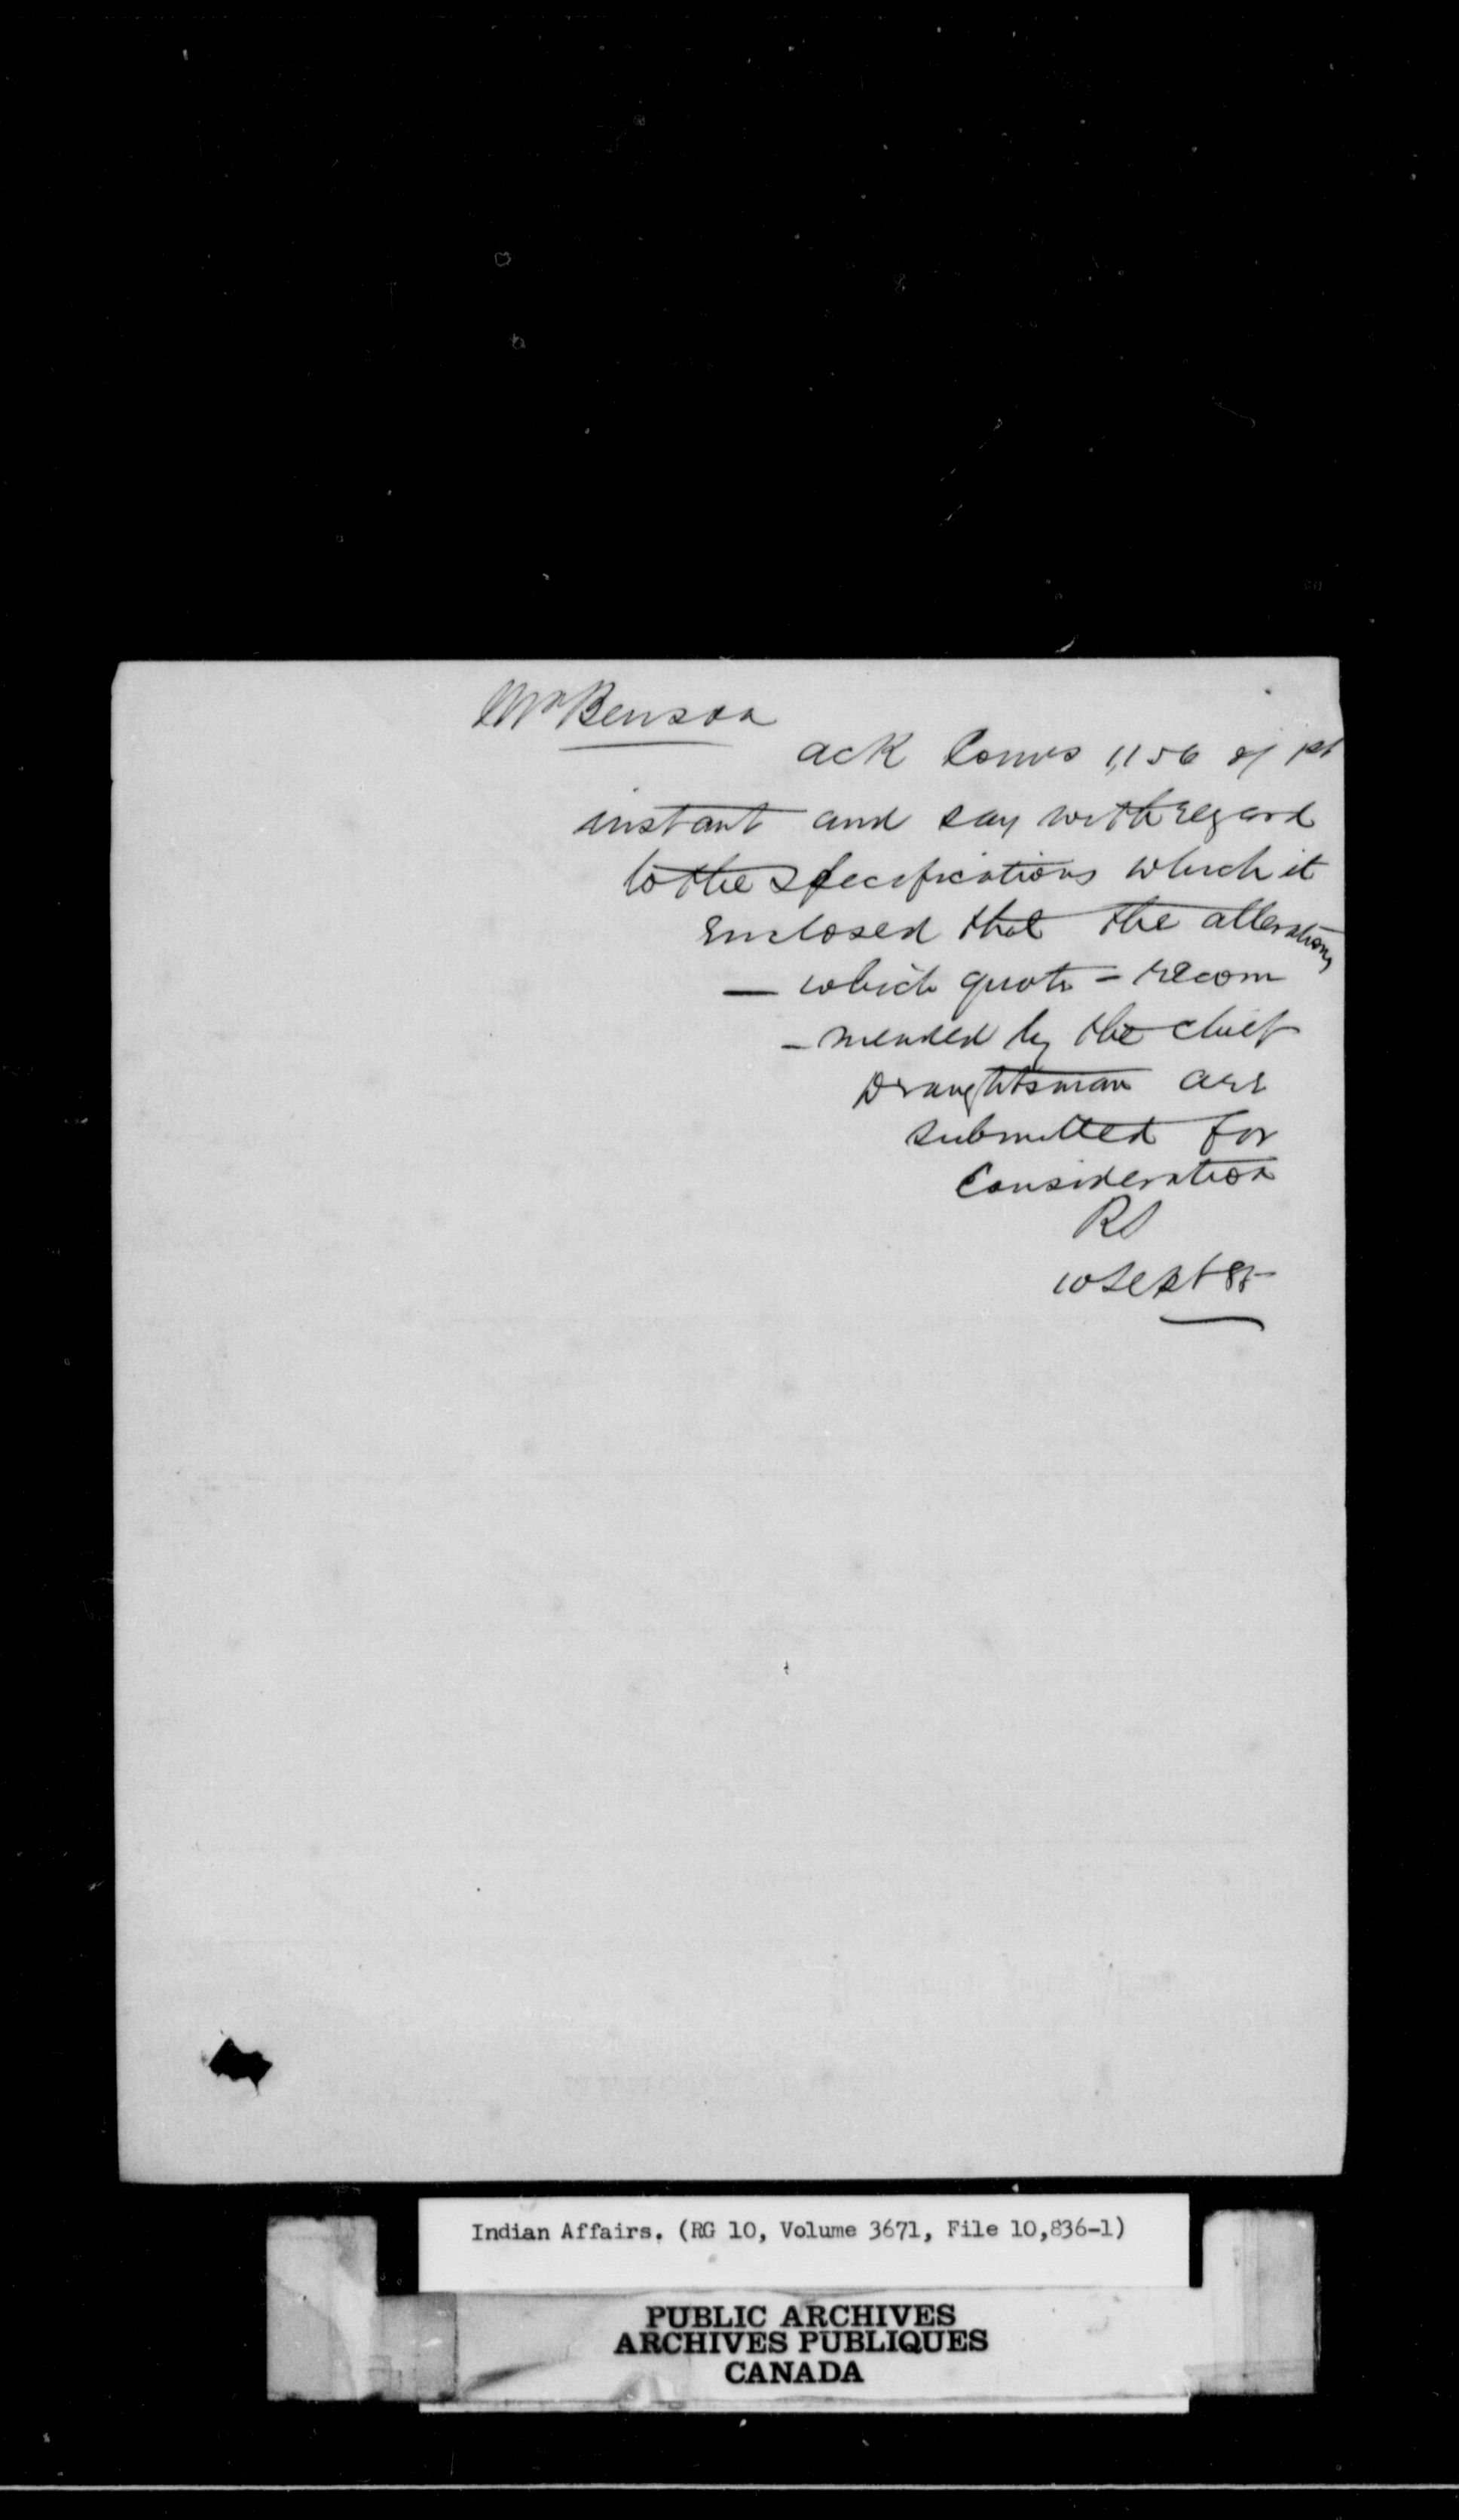 Mr Benson
ack Comrs 1,156 of 1st
instant and say with regard
to the specifications which it
Enclosed that the alterations
— which quote = recom
- mended by the chief
Draughtsman are
submitted for
Consideration
RS
10 Sept 85
Indian Affairs. (RG 10, Volume 3671, File 10,836-1)
PUBLIC ARCHIVES
ARCHIVES PUBLIQUES
CANADA